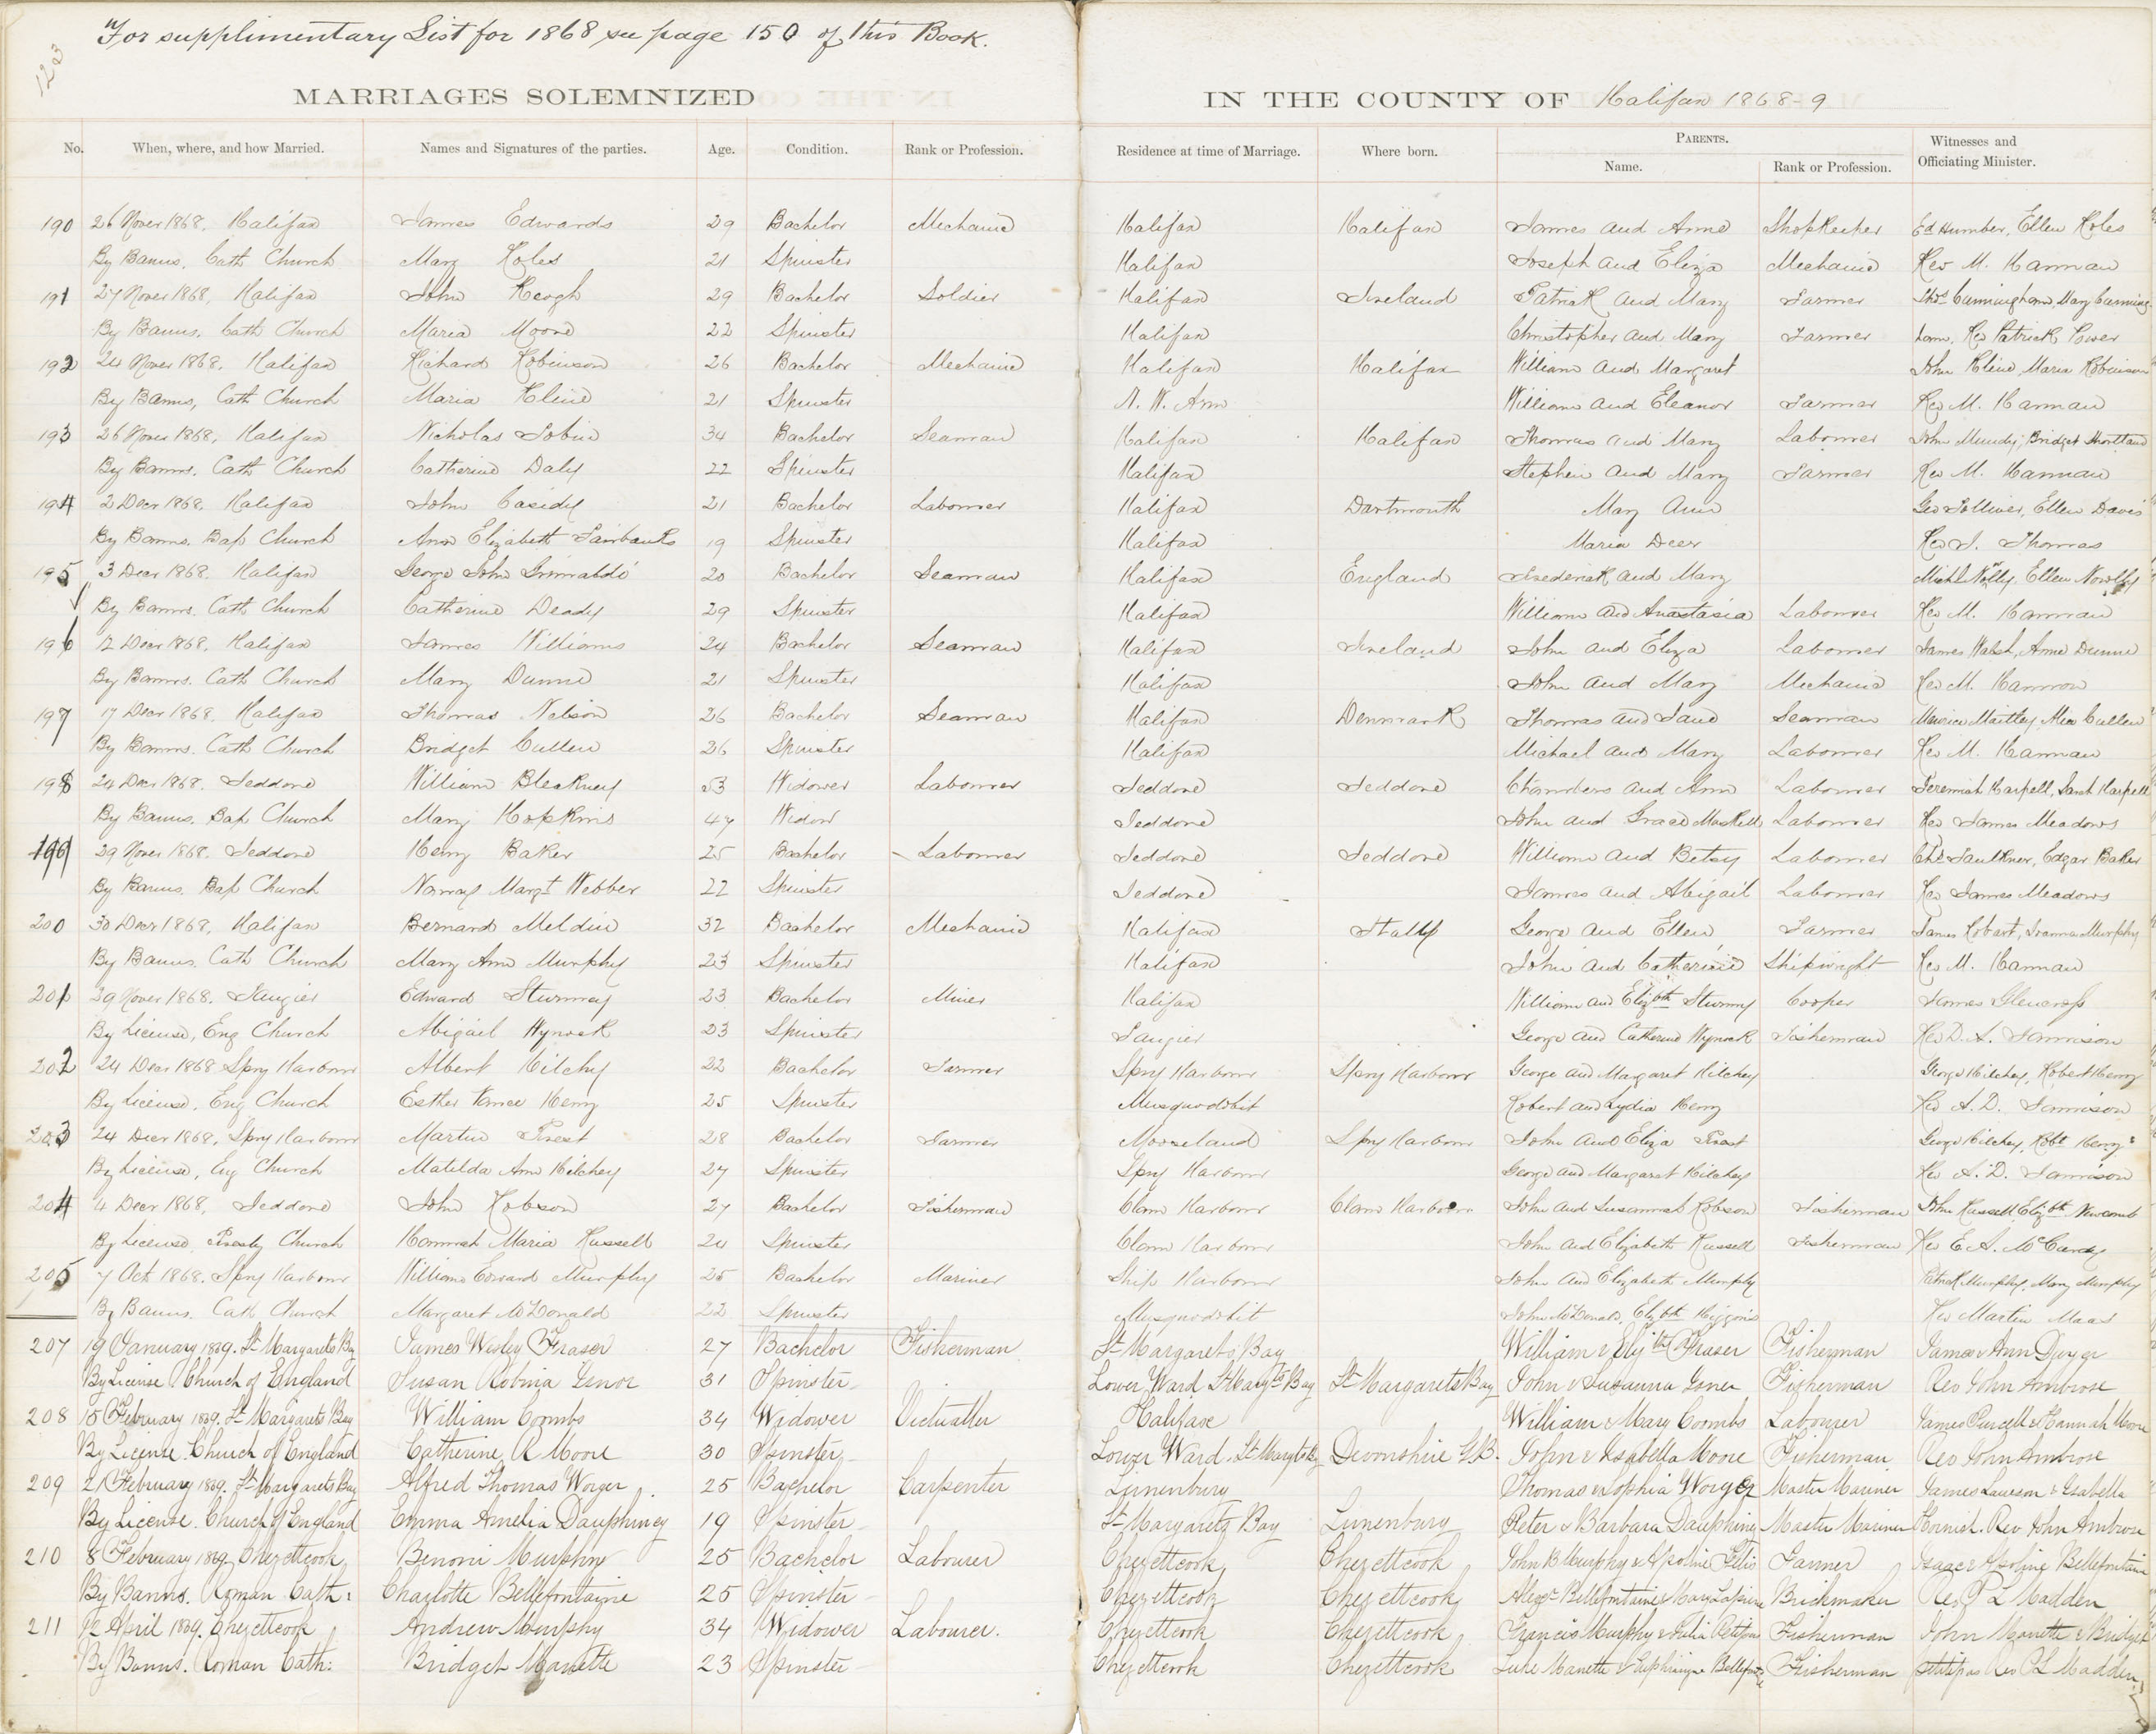 For supplimentary List for 1868 see page 150 of this Book.
123
MARRIAGES SOLEMNIZED IN THE COUNTY OF Halifax 1868-9
No. When, where, and how Married. Names and Signatures of the parties. Age. Condition. Rank or Profession. Residence at time of Marriage. Where born. PARENTS. Name. Rank or Profession. Witnesses and Officiating Minister.
190 26 Nover 1868. Halifax James Edwards 29 Bachelor Mechanic Halifax Halifax James and Anne Shopkeeper Ed Humber, Ellen Holes
By Banns. Cath Church Mary Holes 21 Spinster Halifax Joseph and Eliza Mechanic Rev M. Hannan
191 27 Nover 1868, Halifax John Keogh 29 Bachelor Soldier Halifax Ireland Patrick and Mary Farmer Thos Cunningham, Mary Cunning
By Banns. Cath Church Maria Moore 22 Spinster Halifax Christopher and Mary Farmer Rev Patrick Power
192 24 Nover 1868, Halifax Richard Robinson 26 Bachelor Mechanic Halifax Halifax William and Margaret John Kline, Maria Robinson
By Banns, Cath Church Maria Kline 21 Spinster N. W. Arm William and Eleanor Farmer Rev M. Hannan
193 26 Nover 1868, Halifax Nicholas Tobin 34 Bachelor Seaman Halifax Halifax Thomas and Mary Labourer John Mundy, Bridget
By Banns. Cath Church Catherine Daly 22 Spinster Halifax Stephen and Mary Farmer Rev M. Hannan
194 2 Decr 1868. Halifax John Casidy 21 Bachelor Labourer Halifax Dartmouth Mary Ann Geo Tolliver, Ellen Davis
By Banns. Bap Church Ann Elizabeth Fairbanks 19 Spinster Halifax Maria Deer Rev J. Thomas
195 3 Decr 1868. Halifax George John Grimaldi 20 Bachelor Seaman Halifax England Frederick and Mary Michl Nolly, Ellen
By Banns. Cath Church Catherine Deady 29 Spinster Halifax William and Anastasia Labourer Rev M. Hannan
196 12 Decr 1868, Halifax James Williams 24 Bachelor Seaman Halifax Ireland John and Eliza Labourer James Walsh, Anne Dunne
By Banns. Cath Church Mary Dunne 21 Spinster Halifax John and Mary Mechanic Rev M. Hannan
197 17 Decr 1868, Halifax Thomas Nelson 26 Bachelor Seaman Halifax Denmark Thomas and Jane Seaman Cullen
By Banns. Cath Church Bridget Cullen 26 Spinster Halifax Michael and Mary Labourer Rev M. Hannan
198 24 Decr 1868. Jeddore William Bleakney 53 Widower Labourer Jeddore Jeddore Chambers and Ann Labourer Jeremiah Harpell, Sarah Harpell
By Banns. Bap Church Mary Hopkins 47 Widow Jeddore John and Grace Maskell Labourer Rev James Meadows
199 29 Nover 1868. Jeddore Henry Baker 25 Bachelor Labourer Jeddore Jeddore William and Betsy Labourer Chs Faulkner, Edgar Baker
By Banns. Bap Church Nancy Margt Webber 22 Spinster Jeddore James and Abigail Labourer Rev James Meadows
200 30 Decr 1868, Halifax Bernard Meldin 32 Bachelor Mechanic Halifax Italy George and Ellen Farmer James Hobart, Joanna Murphy
By Banns. Cath Church Mary Ann Murphy 23 Spinster Halifax John and Catherine Shipwright Rev M. Hannan
201 29 Nover 1868. Tangier Edward Sturmey 23 Bachelor Miner Halifax William and Elizbth Sturmy Cooper James Glencross
By License, Eng Church Abigail Wynock 23 Spinster Tangier George and Catherine Wynock Fisherman Rev D. A. Jamison
202 24 Decr 1868 Spry Harbour Albert Hilchy 22 Bachelor Farmer Spry Harbour Spry Harbour George and Margaret Hilchey George Hilchey, Robert Henry
By License, Eng Church Esther Henry 25 Spinster Musquodobit Robert and Lydia Henry Rev A. D. Jamison
203 24 Decr 1868, Spry Harbour Martin Prest 28 Bachelor Farmer Mooseland Spry Harbour John and Eliza Prest George Hilchey, Robt Henry
By License, Eng Church Matilda Ann Hilchey 27 Spinster Spry Harbour George and Margaret Hilchey Rev A. D. Jamison
204 4 Decr 1868, Jeddore John Robson 27 Bachelor Fisherman Clam Harbour Clam Harbour John and Susannah Robson Fisherman John Russell, Elizbth Newcomb
By License, Presby Church Hannah Maria Russell 24 Spinster Clam Harbour John and Elizabeth Russell Fisherman Rev E. A. McCurdy
205 7 Oct 1868. Spry Harbour William Edward Murphy 25 Bachelor Mariner Ship Harbour John and Elizabeth Murphy Patrick Murphy, Mary Murphy
By Banns. Cath Church Margaret McDonald 22 Spinster Musquodobit John McDonald, Elizbth Higgins Rev Martin Maas
207 19 January 1869. St Margarets Bay James Wesley Fraser 27 Bachelor Fisherman St Margarets Bay William & Elizth Fraser Fisherman James & Ann Dwyer
By License. Church of England Susan Robina Isnor 31 Spinster Lower Ward St Margts Bay St Margarets Bay John & Susanna Isner Fisherman Rev John Ambrose
208 15 February 1869. St Margarets Bay William Coombs 34 Widower Victualler Halifax William & Mary Coombs Labourer James Purcell & Hannah Moore
By License. Church of England Catherine R Moore 30 Spinster Lower Ward. St Margts Bay Devonshire G.B. John & Isabella Moore Fisherman Rev John Ambrose
209 2 February 1869. St Margarets Bay Alfred Thomas Worger 25 Bachelor Carpenter Lunenburg Thomas & Sophia Worger Master Mariner James Lawson & Isabella
By License. Church of England Emma Amelia Dauphiney 19 Spinster St Margarets Bay Lunenburg Peter & Barbara Dauphiney Master Mariner Hornish. Rev John Ambrose
210 8 February 1869. Chezettcook Benoni Murphy 25 Bachelor Labourer Chezettcook Chezettcook John B Murphy & Apoline Farmer Isaac & Apoline Bellefontaine
By Banns. Roman Cath: Charlotte Bellefontaine 25 Spinster Chezettcook Chezettcook Bellefontaine & Mary Lapierre Brickmaker Rev P L Madden
211 12 April 1869. Chezettcook Andrew Murphy 34 Widower Labourer. Chezettcook Chezettcook Francis Murphy & Julia Petitpas Fisherman John Manette & Bridget
By Banns. Roman Cath: Bridget Manette 23 Spinster Chezettcook Chezettcook Luke Manette & Bellefontaine Fisherman Petitpas Rev P L Madden